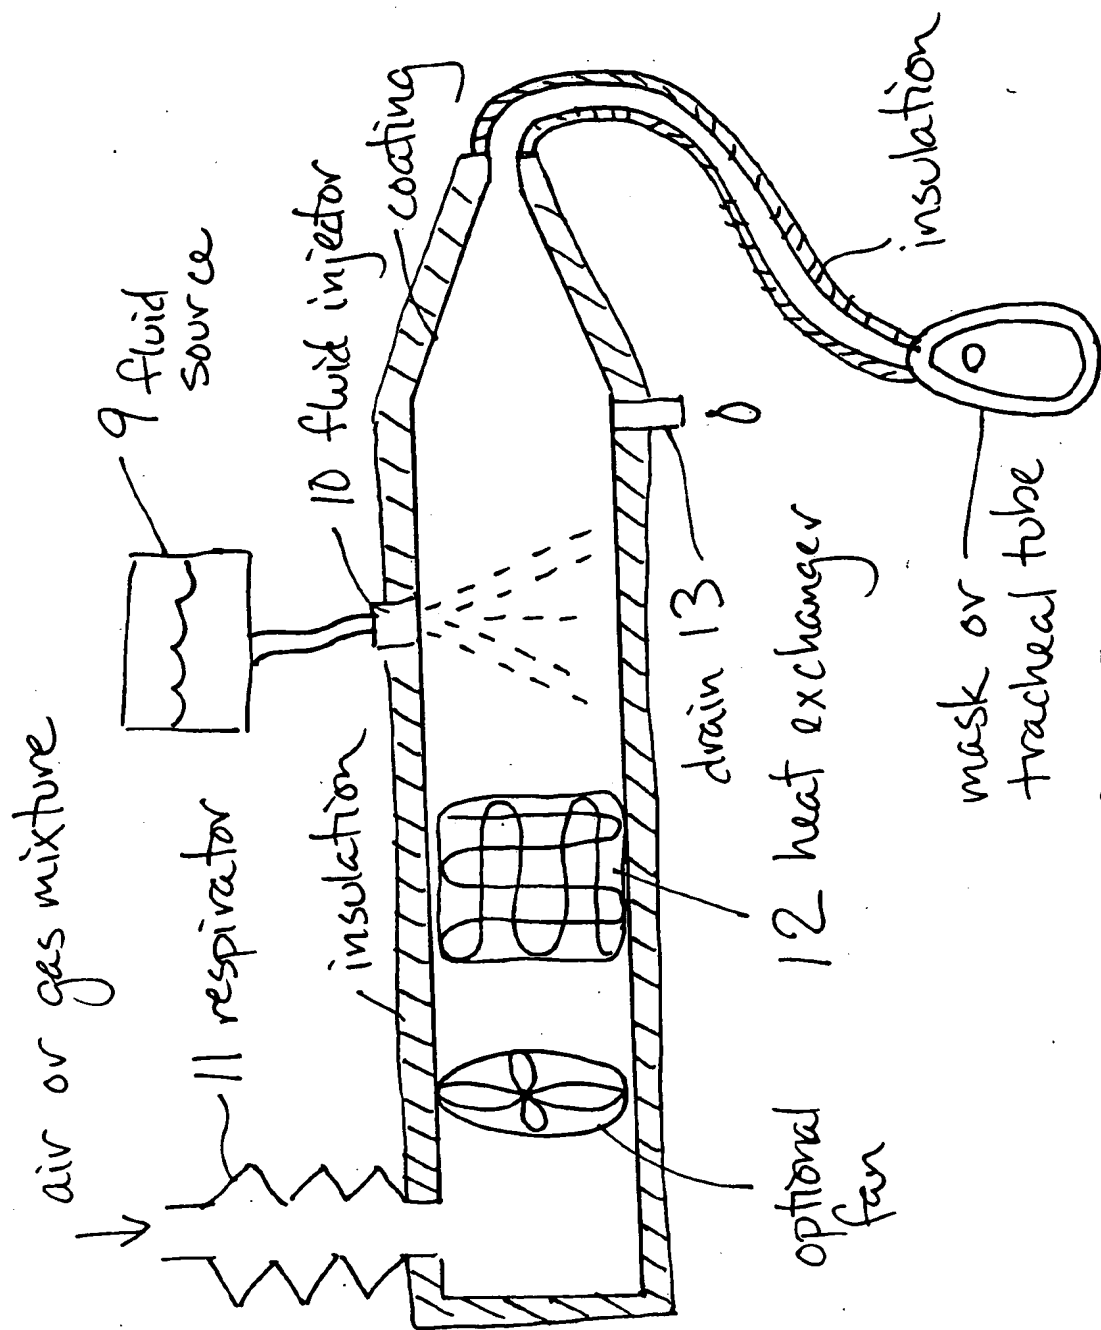 air or gas mixture
11 respirator
insulation
9 fluid
source
10 fluid injector
coating
optional
fan
12 heat exchanger
drain 13
mask or
tracheal tube
insulation